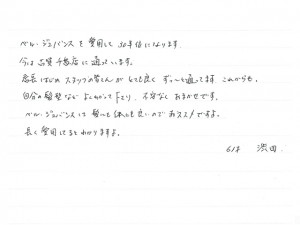 ベル・ジュバンスを愛用して30年位になります。
今は古賀千鳥店に通っています。
店長はじめスタッフの皆さんがとても良くずっーと通ってます これからも、
自分の髪型など よくわかって下さり、不安なくおまかせです。
ベル・ジュバンスは髪にも体にも良いのでおススメですよ。
長く愛用してるとわかりますよ。
61才 渋田